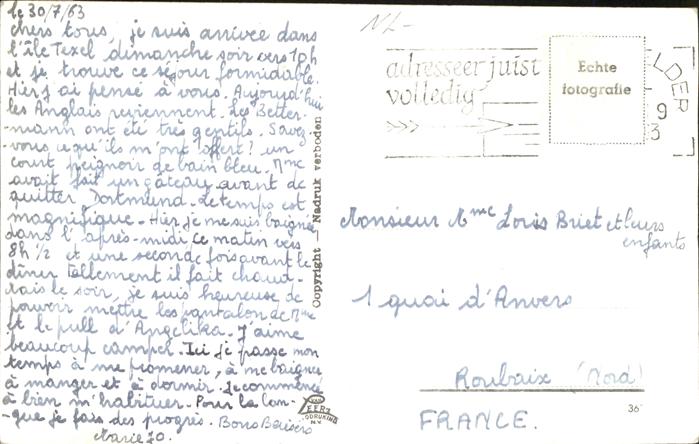 le 30/7/63
chers tous, je suis arrivée dans
l'île Texel dimanche soir vers 10h
et je trouve ce séjour formidable.
Hier j'ai pensé à vous. Aujourd'hui
les Anglais reviennent. Les Better-
-mann ont été très gentils. Savez-
-vous ce qu'ils m'ont offert? un
court peignoir de bain bleu. Mme
avait fait un gâteau avant de
quitter Dortmund. Le temps est
magnifique. Hier je me suis baignée
dans l'après-midi, ce matin vers
8h 1/2 et une seconde fois avant le
dîner tellement il fait chaud.
Mais le soir, je suis heureuse de
pouvoir mettre les pantalon de Mme
et le pull d'Angelika. J'aime
beaucoup camper. Ici je passe mon
temps à me promener, à me baigner
à manger et à dormir. Je commence
à bien m'habituer. Pour la lan-
-gue je fais des progrès. Bons Baisers
Marie Jo.
Copyright — Nadruk verboden
VAN
LEER'S
N.V.
adresseer juist
volledig
Echte
fotografie
Monsieur Mme Louis Briet et leurs
enfants
1 quai d'Anvers
Roubaix (Nord)
FRANCE.
36